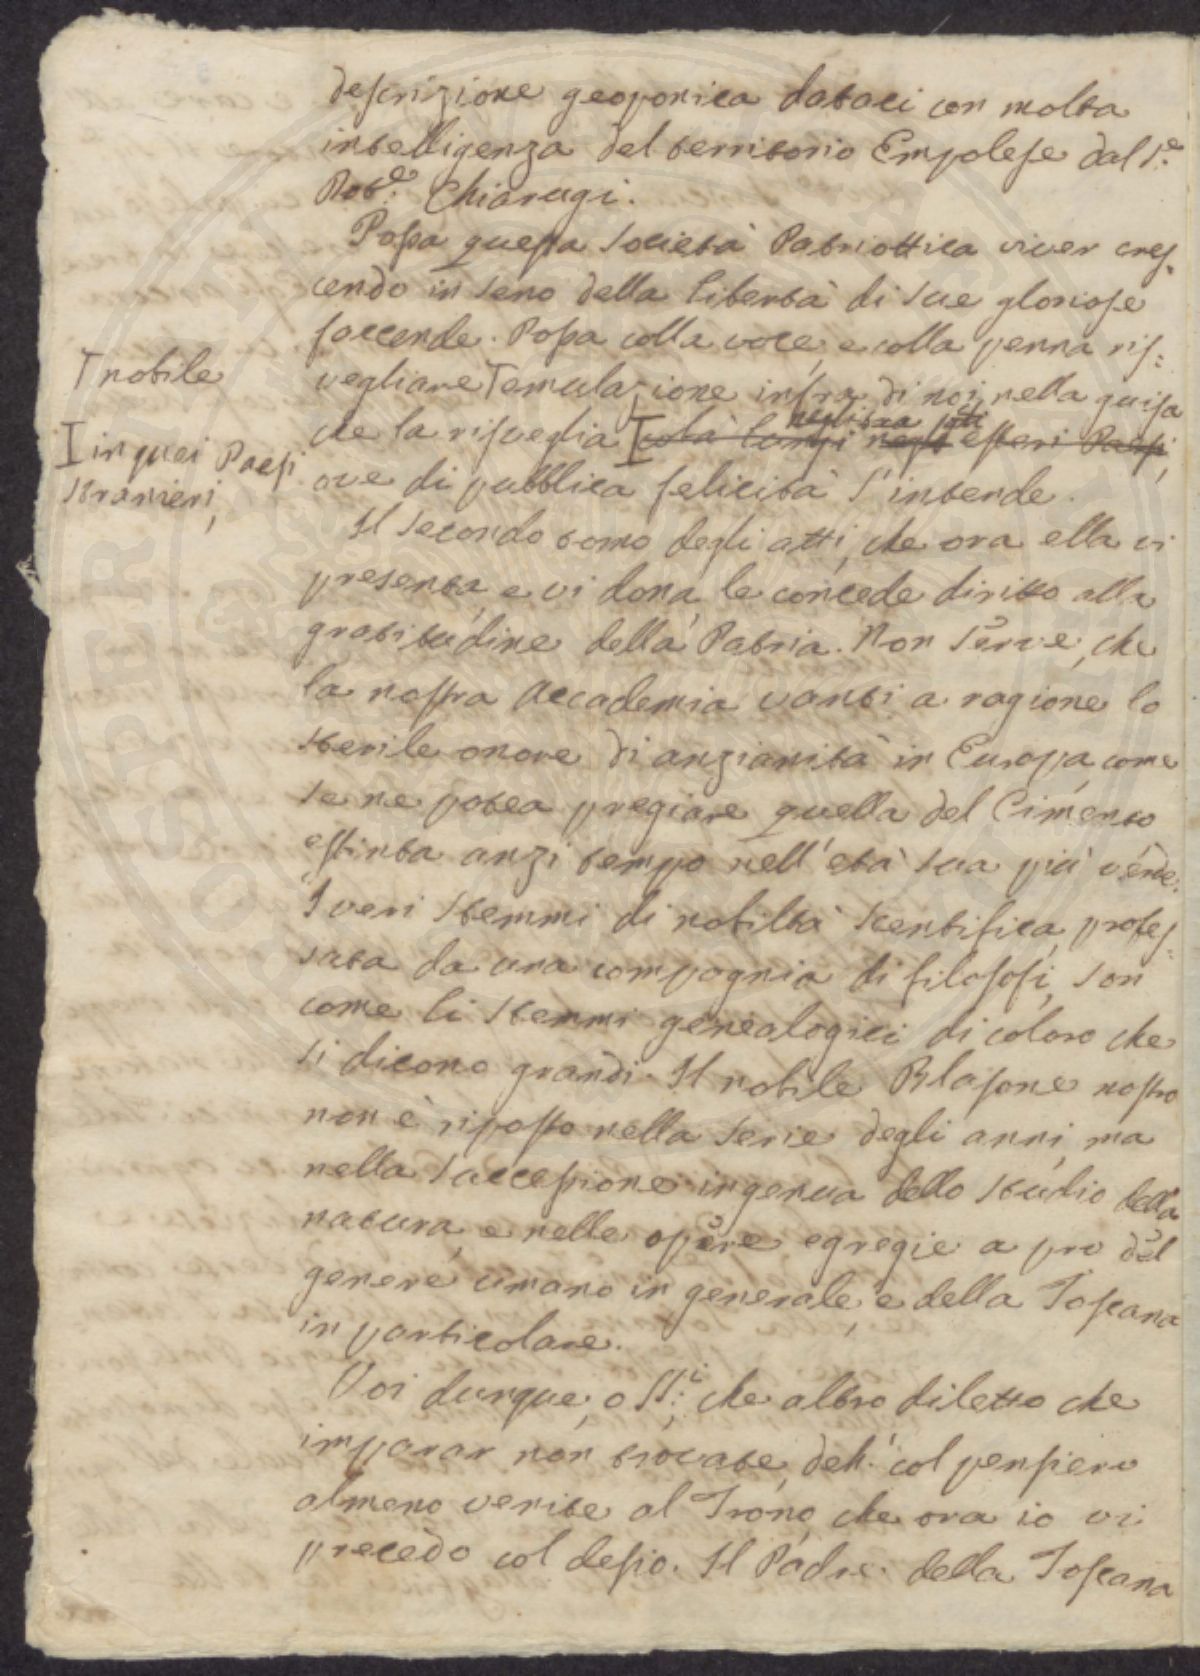 descrizione geoponica dataci con molta
intelligenza del territorio Empolese dal S.e
Dot.e Chiarugi.
Possa questa Società Patriottica viver cres-
cendo in seno della libertà di sue gloriose
faccende. Possa colla voce, e colla penna ris=
vegliare T emulazione infra di noi nella guisa
T nobile
che la risveglia I colà lungi negli esteri Paesi,
I in quei Paesi
stranieri,
ove di pubblica felicità s'intende.
Il secondo tomo degli atti, che ora ella vi
presenta, e vi dona, le concede diritto alla
gratitudine della Patria. Non serve, che
la nostra Accademia vanti a ragione lo
sterile onore di anzianità in Europa, come
se ne potea pregiare quella del Cimento
estinta anzi tempo nell'età sua più verde.
I veri stemmi di nobiltà scentifica, profes=
sata da una compagnia di filosofi, son
come li stemmi genealogici di coloro che
si dicono grandi. Il nobile Blasone nostro
non è riposto nella serie degli anni, ma
nella successione ingenua dello studio della
natura, e nelle opere egregie a pro del
genere umano in generale, e della Toscana
in particolare.
Voi dunque, o SS.i, che altro diletto che
imparar non trovate, deh! col pensiero
almeno venite al Trono, che ora io vi
precedo col desio. Il Padre della Toscana